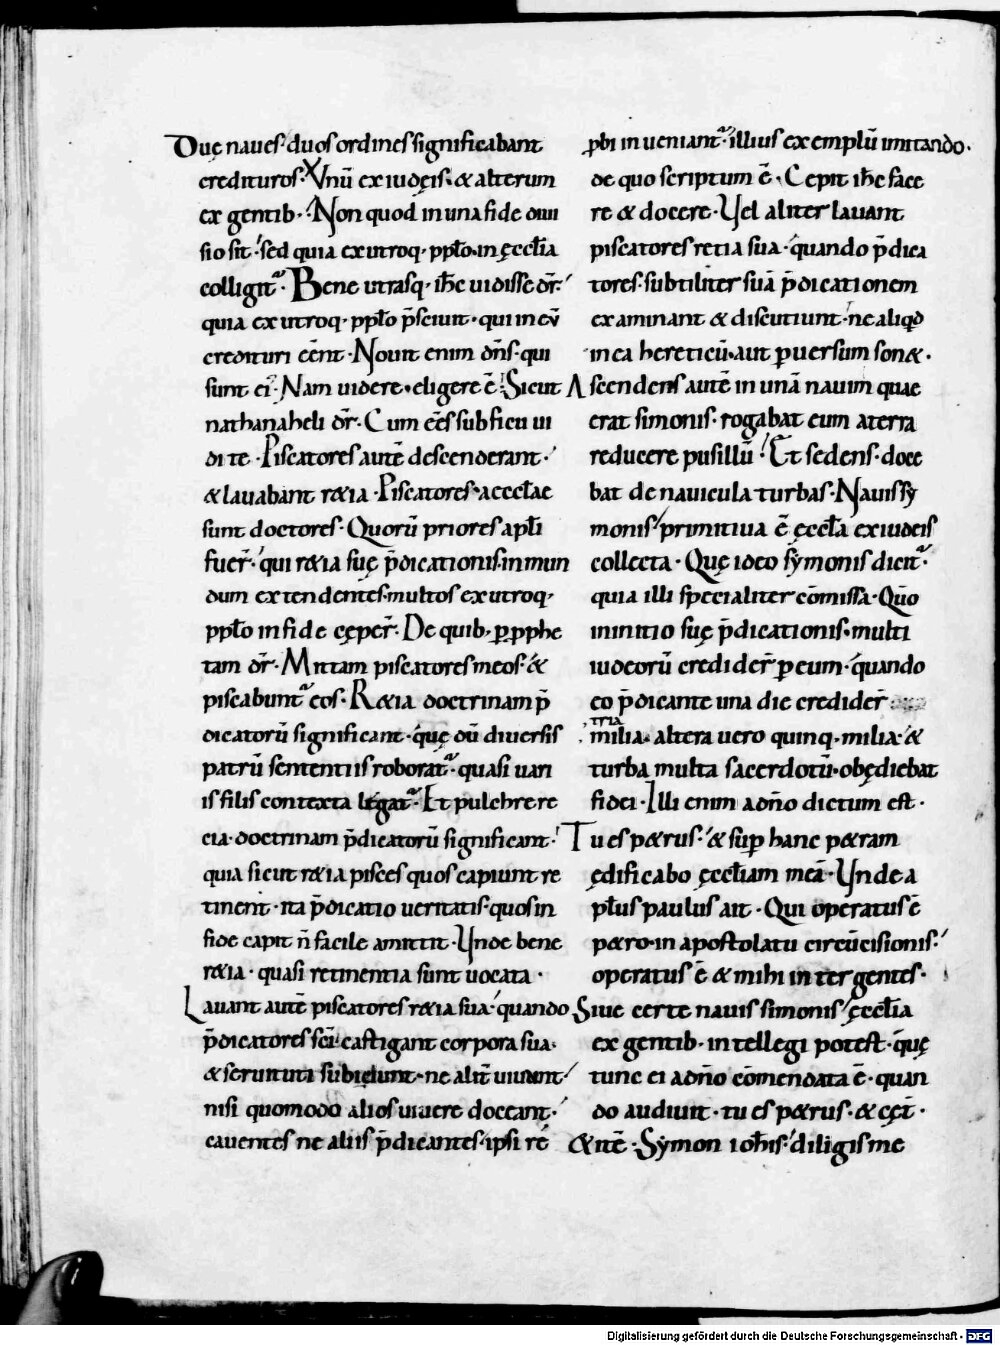 Duę naues duos ordines significabant
credituros. Vnū ex iudęis. & alterum
ex gentib. Non quod in una fide diui
sio sit. sed quia ex utroq. pplo. in ęccl̄ia
colligit. Bene utrasq. ih̄c uidisse dr̄.
quia ex utroq. pplo p̄sciuit. qui in eū
credituri eēnt. Nouit enim dn̄s. qui
sunt ei. Nam uidere. eligere ē. Sicut
nathanaheli dr̄. Cum eēs sub ficu ui
di te. Piscatores autē descenderant.
& lauabant r&ia. Piscatores. aecclae
sunt doctores. Quorū priores apl̄i
fuer̄. qui r&ia suę p̄dicationis. in mun
dum extendentes. multos ex utroq.
pplo in fide cęper̄. De quib. ꝑ ꝓphe
tam dr̄. Mittam piscatores meos. &
piscabunt eos. R&ia doctrinam p̄
dicatorū significant. quę dū diuersis
patrū sententiis roborat. quasi uari
is filis contexta legat. Et pulchre re
cia. doctrinam p̄dicatorū significant.
quia sicut r&ia pisces quos capiunt re
tinent. ita p̄dicatio ueritatis. quos in
fide capit n̄ facile amittit. Unde bene
r&ia. quasi retinentia sunt uocata.
Lauant autē piscatores r&ia sua. quando
p̄dicatores sc̄i castigant corpora sua.
& seruituti subiciunt. ne alit̄ uiuant
nisi quomodo alios uiuere doceant.
cauentes ne aliis p̄dicantes. ipsi re
ꝓbi inueniant. illius exemplū imitando.
de quo scriptum ē. Cepit ih̄c face
re & docere. Uel aliter lauant
piscatores retia sua. quando p̄dica
tores. subtiliter suā p̄dicationem
examinant & discutiunt. ne aliqd
in ea hereticū. aut ꝑuersum son&.
Ascendens autē in unā nauim quae
erat simonis. rogabat eum a terra
reducere pusillū. Et sedens. doce
bat de nauicula turbas. Nauis sy
monis. primitiua ē ęccl̄a ex iudeis
collecta. Quę ideo symonis dicit.
quia illi specialiter cōmissa. Qūo
in initio suę p̄dicationis. multi
iudeorū credider̄ ꝑ eum. quando
eo p̄dicante una die credider̄
tria
milia. altera uero quinq. milia. &
turba multa sacerdotū. obędiebat
fidei. Illi enim a dn̄o dictum est.
Tu es p&rus. & suꝑ hanc p&ram
ędificabo ęccl̄iam meā. Unde a
pl̄us paulus ait. Qui operatus ē
p&ro. in apostolatu circūcisionis.
operatus ē & mihi inter gentes.
Siue certe nauis simonis. ęccl̄ia
ex gentib. intellegi potest. quę
tunc ei a dn̄o cōmendata ē. quan
do audiuit. tu es p&rus. & cęt̄.
& itē. Symon ioh̄is. diligis me
Digitalisierung gefördert durch die Deutsche Forschungsgemeinschaft - DFG